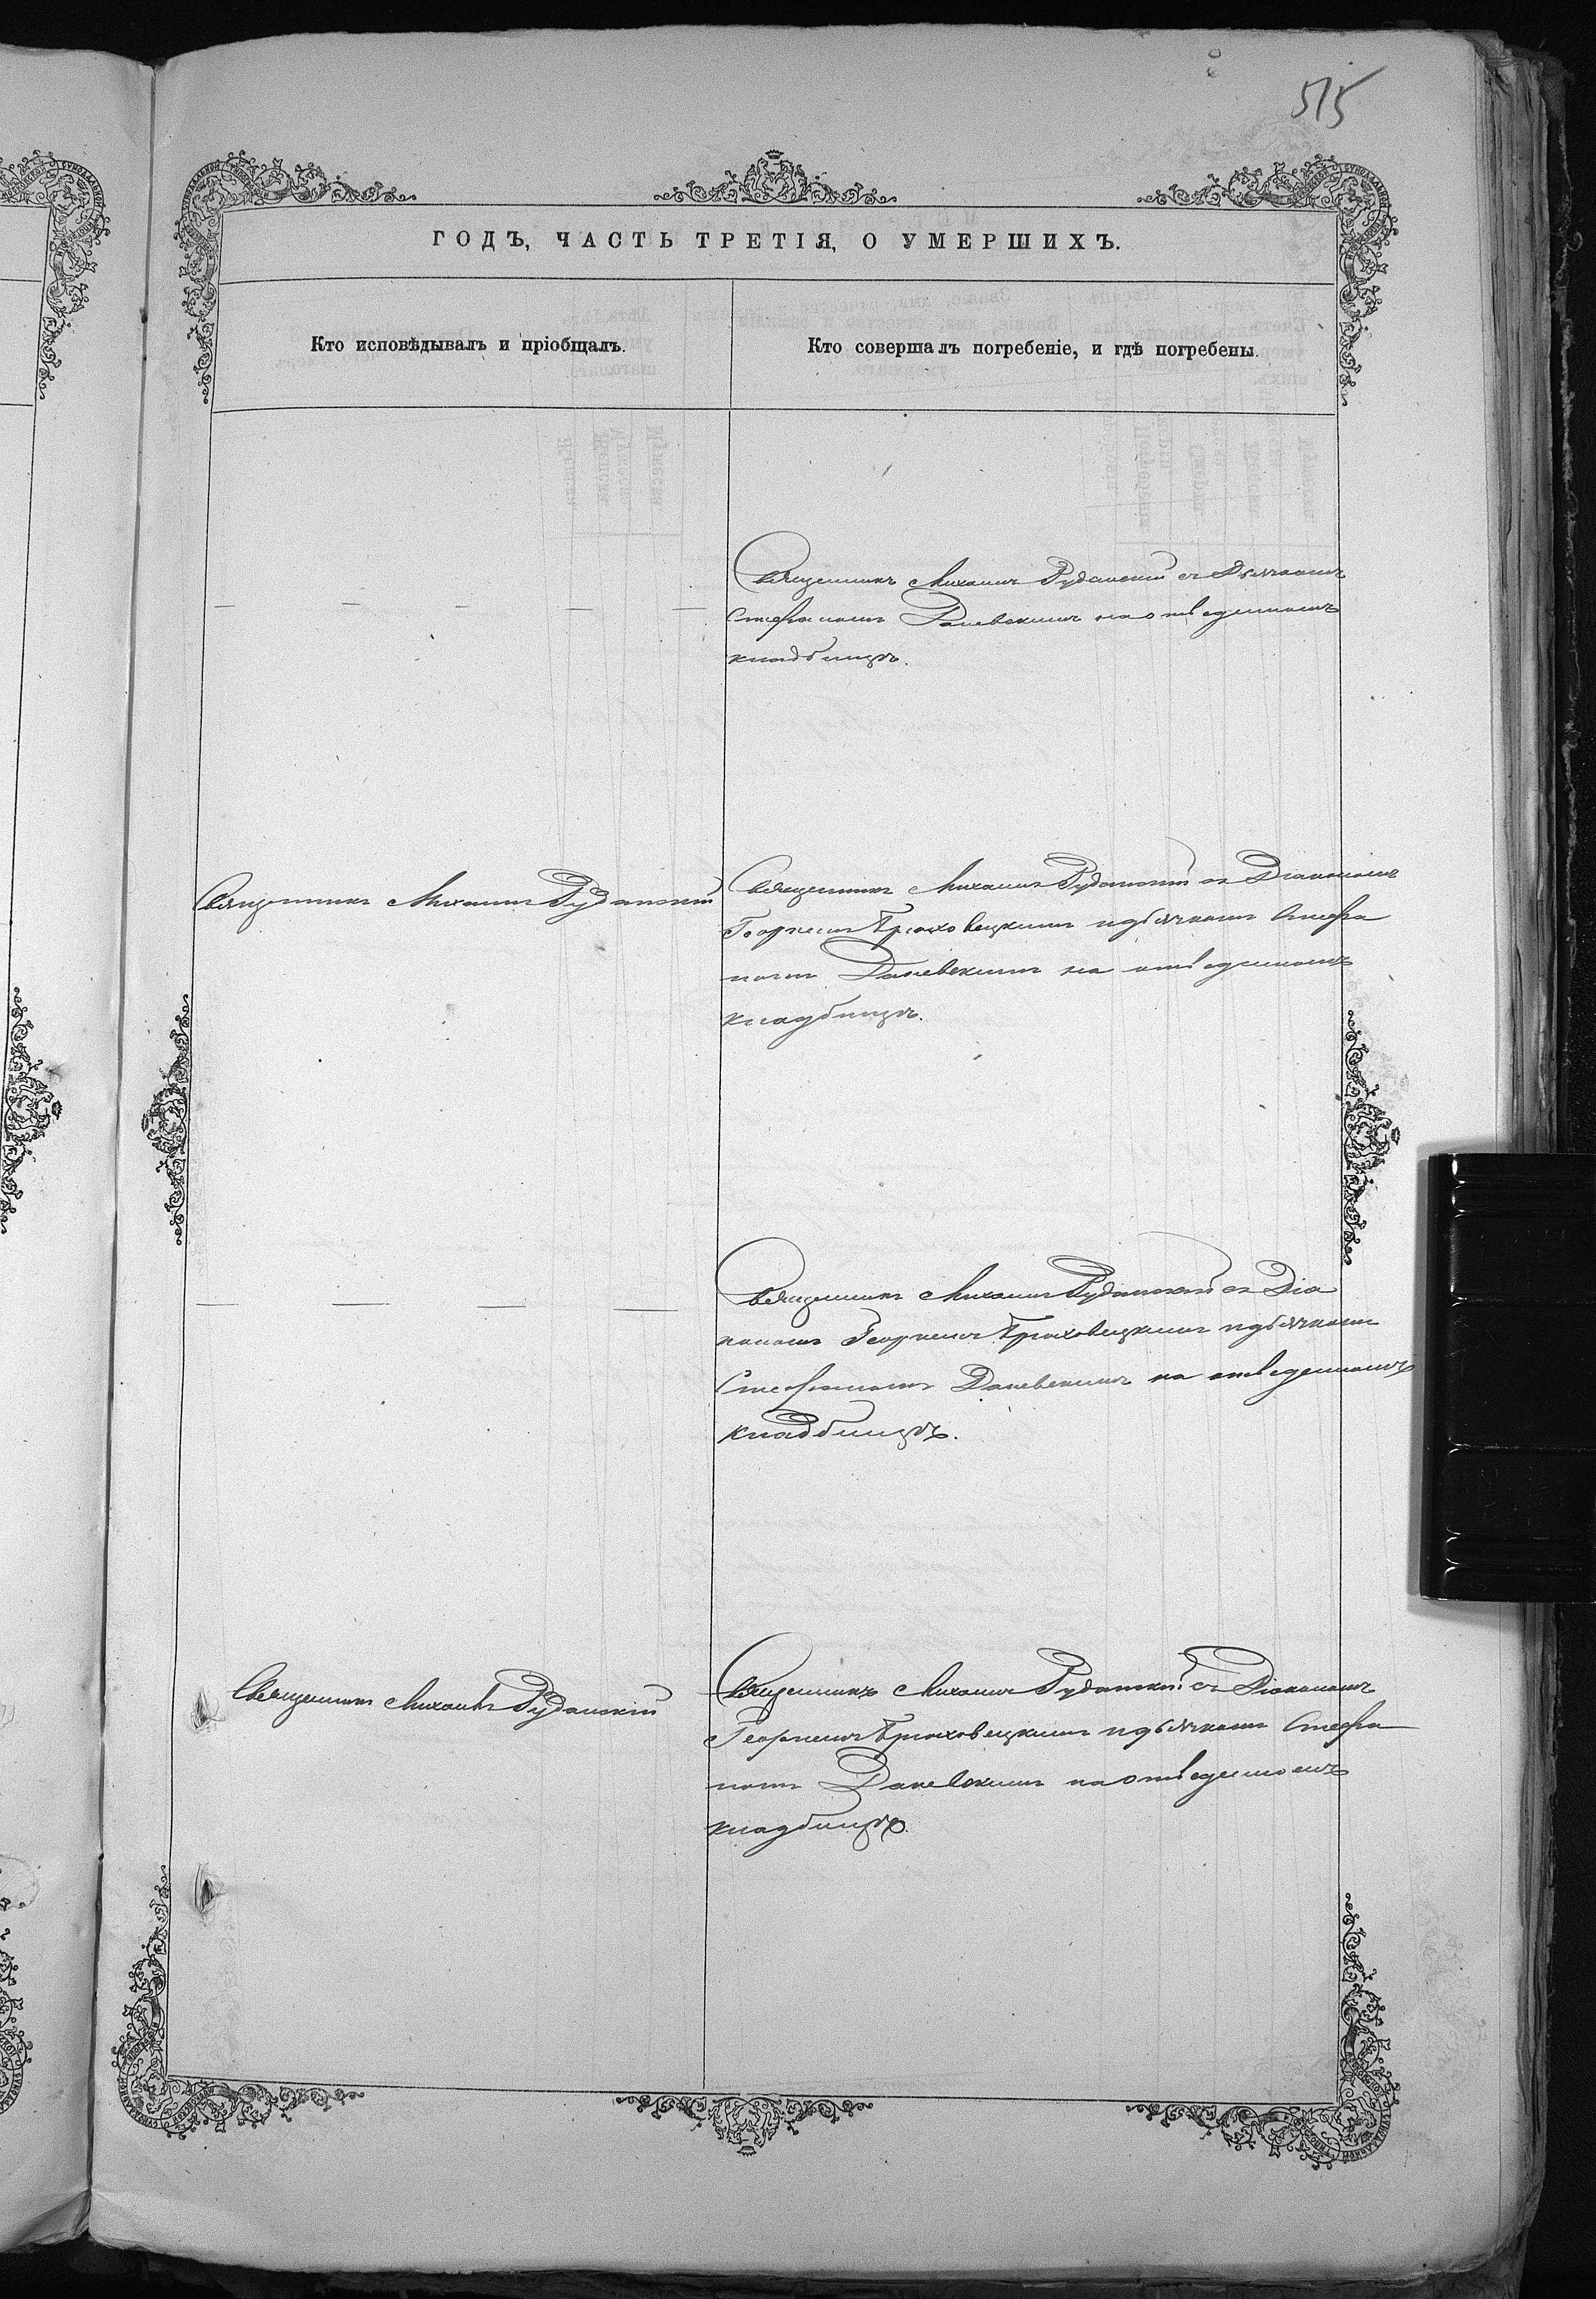 515
ГОДЪ, ЧАСТЬ ТРЕТІЯ, О УМЕРШИХЪ.
Кто исповѣдывалъ и пріобщалъ.
Кто совершалъ погребеніе, и гдѣ погребены.
Священникъ Михаилъ Руданскій съ Дьячкомъ
Стефаномъ Даневскимъ на отведенномъ
кладбищѣ.
Священникъ Михаилъ Руданскій
Священникъ Михаилъ Руданскій съ Діакономъ
Георгіемъ Бржховецкимъ и дьячкомъ Стефа
номъ Даневскимъ на отведенномъ
кладбищѣ.
Священникъ Михаилъ Руданскій съ Діа
кономъ Георгіемъ Бржховецкимъ и дьячкомъ
Стефаномъ Даневскимъ на отведенномъ
кладбищѣ.
Священникъ Михаилъ Руданскій
Священникъ Михаилъ Руданскій съ Діакономъ
Георгіемъ Бржховецкимъ и дьячкомъ Стефа
номъ Даневскимъ на отведенномъ
кладбищѣ.